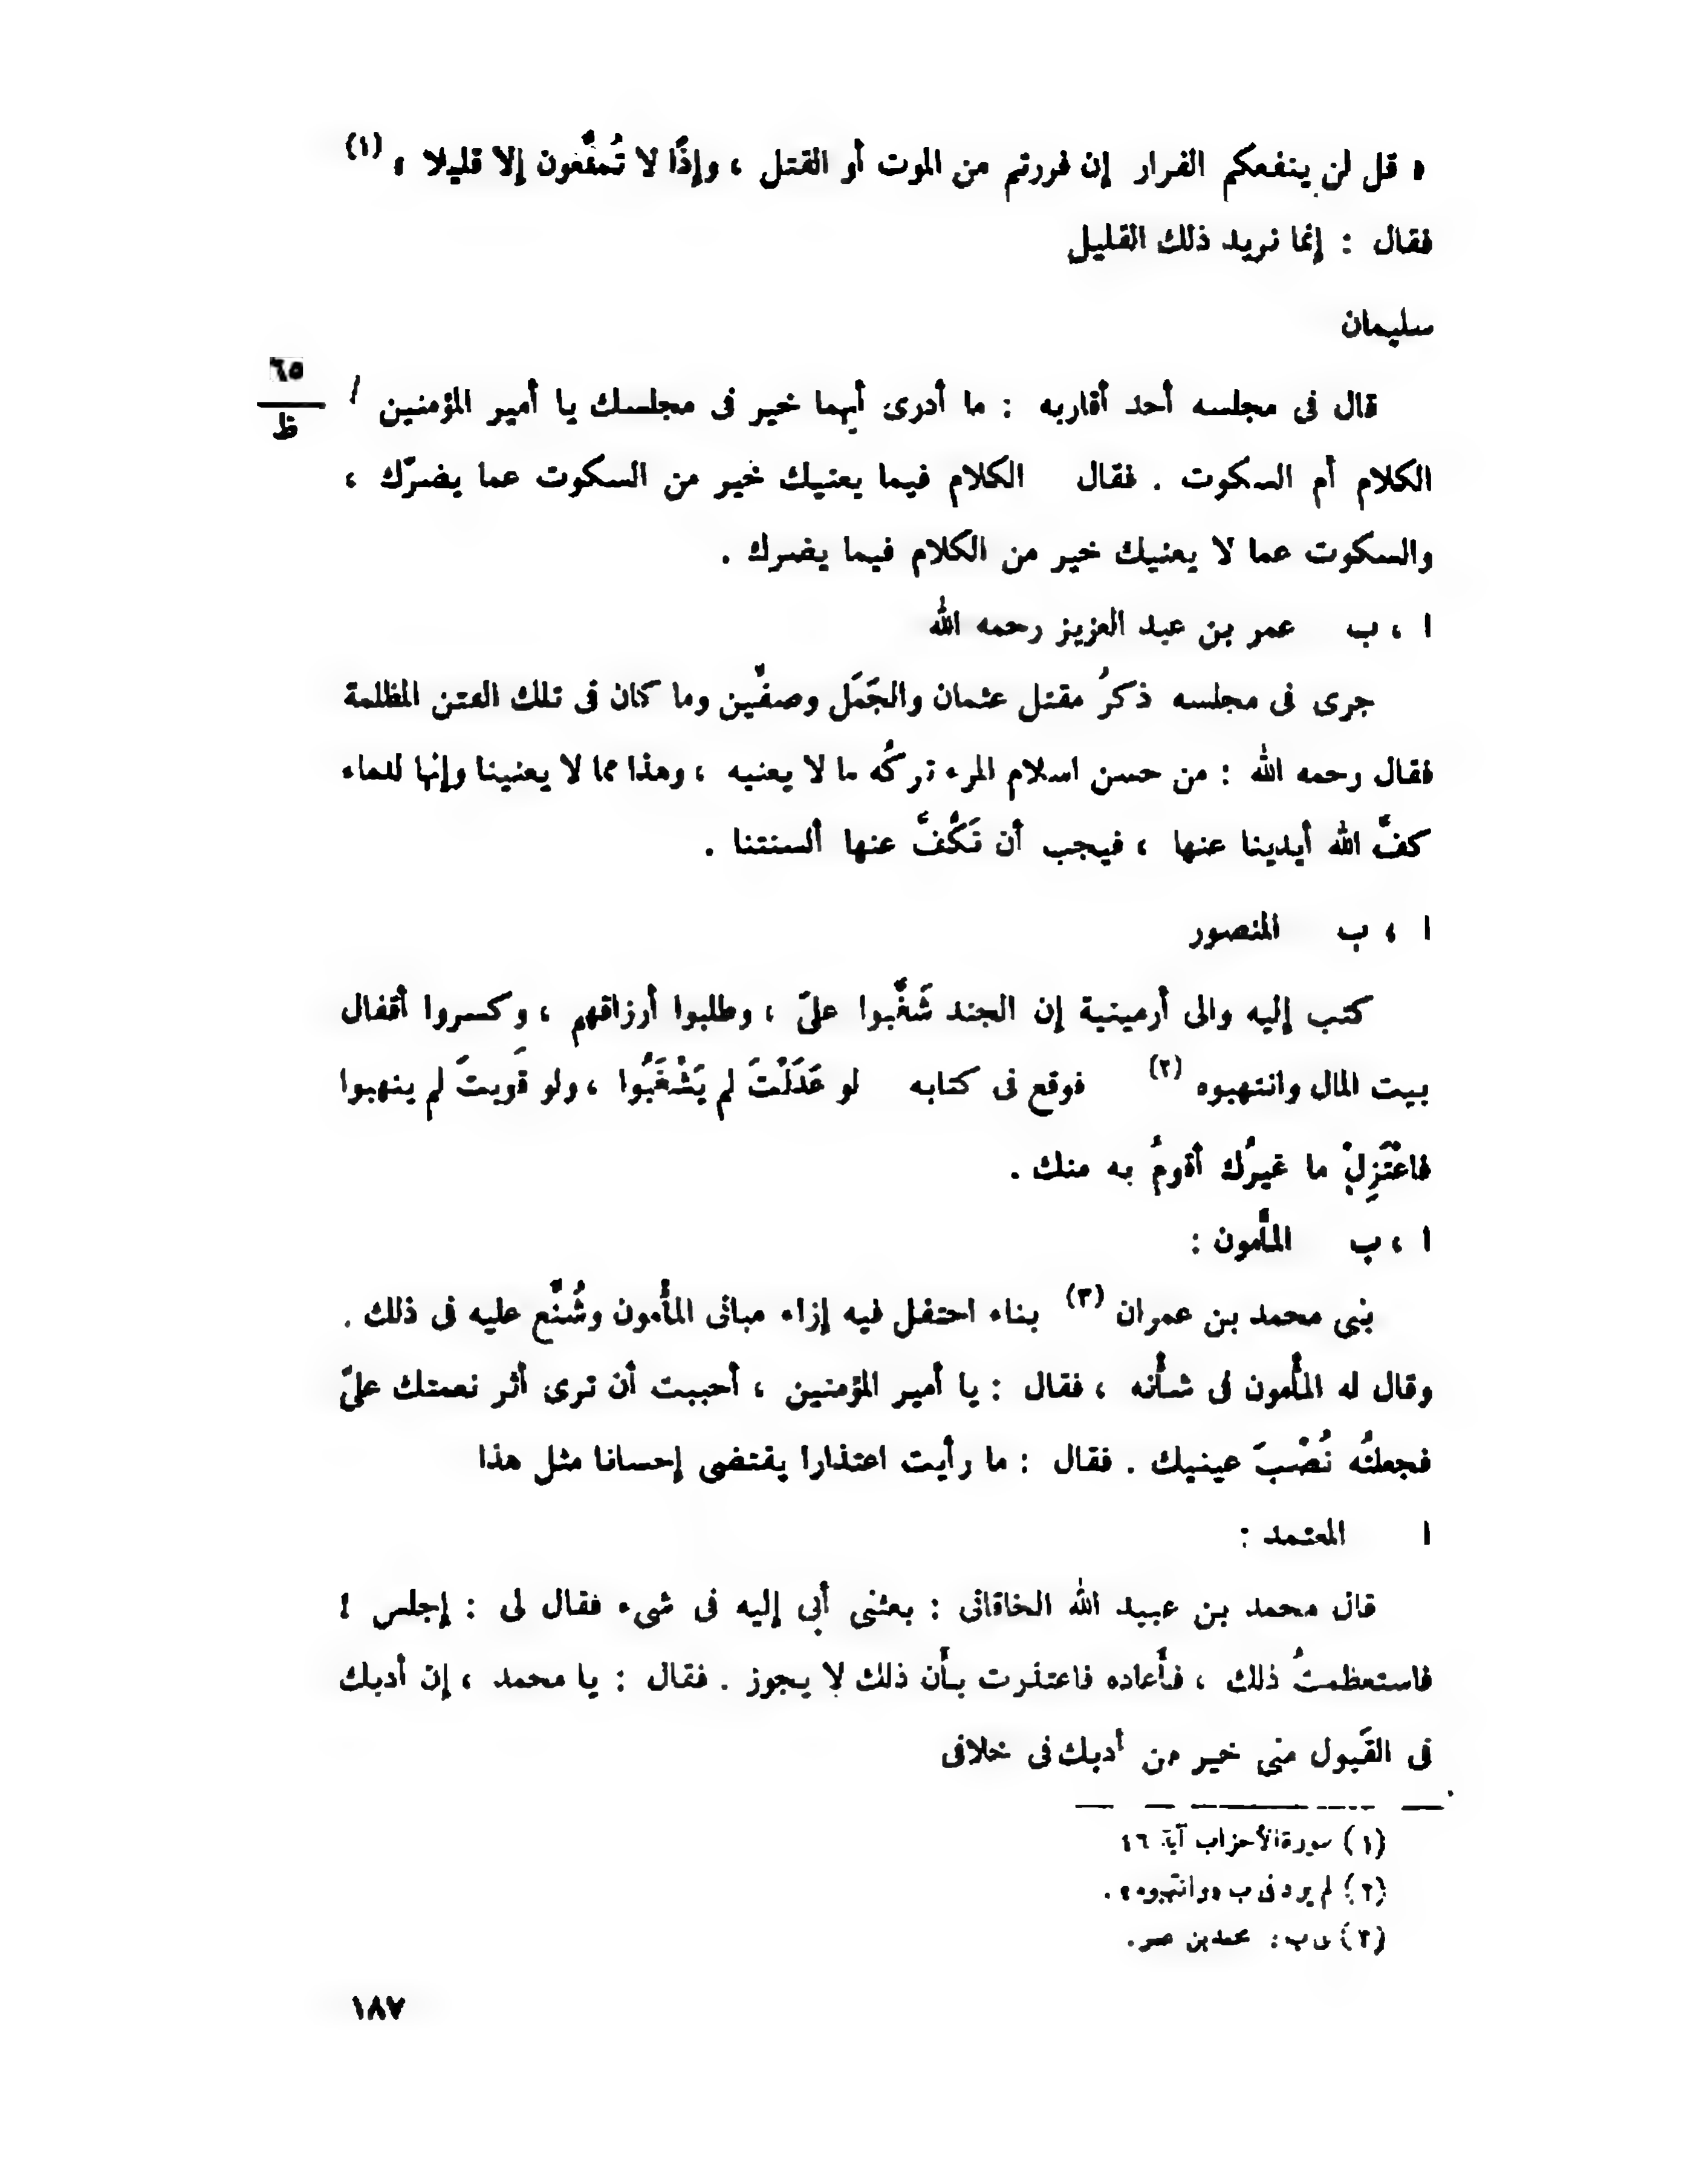 « قل لن ينفعكم الفرار إن فررتم من الموت أو القتل ، وإذًا لا تُمتَّعون إلا قليلا » (١)
فقال : إنما نريد ذلك القليل
سليمان
قال فى مجلسه أحد أقاربه : ما أدرى أيهما خير فى مجلسك يا أمير المؤمنين /
٦٥
ظ
الكلام أم السكوت . فقال الكلام فيما يعنيك خير من السكوت عما يضرّك ،
والسكوت عما لا يعنيك خير من الكلام فيما يضرك .
ا ، ب عمر بن عبد العزيز رحمه الله
جرى فى مجلسه ذكرُ مقتل عثمان والجَمَل وصفِّين وما كان فى تلك الفتن المظلمة
فقال رحمه الله : من حسن اسلام المرء تركُه ما لا يعنيه ، وهذا مما لا يعنينا وإنها لدماء
كفَّ الله أيدينا عنها ، فيجب أن نَكُفَّ عنها ألسنتنا .
ا ، ب المنصور
كتب إليه والى أرمينية إن الجند شَغَّبوا علىّ ، وطلبوا أرزاقهم ، وكسروا أقفال
بيت المال وانتهبوه (٢) فوقع فى كتابه لو عَدَلْتَ لم يَشْغَبُوا ، ولو قَويتَ لم ينهبوا
فاعْتَزِلْ ما غيرُك أقومُ به منك .
ا ، ب المأمون :
بنى محمد بن عمران (٣) بناء احتفل فيه إزاء مبانى المأمون وشُنِّع عليه فى ذلك .
وقال له المأمون فى شأنه ، فقال : يا أمير المؤمنين ، أحببت أن ترى أثر نعمتك علىّ
فجعلتُه نُصْبَ عينيك . فقال : ما رأيت اعتذارا يقتضى إحسانا مثل هذا
ا المعتمد :
قال محمد بن عبيد الله الخاقانى : بعثنى أبى إليه فى شىء فقال لى : إجلس !
فاستعظمتُ ذلك ، فأعاده فاعتذرت بأن ذلك لا يجوز . فقال : يا محمد ، إن أدبك
فى القَبول منى خير من أدبك فى خلافى
(١) سورة الأحزاب آية ١٦
(٢) لم يرد فى ب « وانتهبوه » .
(٣) فى ب : محمد بن عمر .
١٨٧